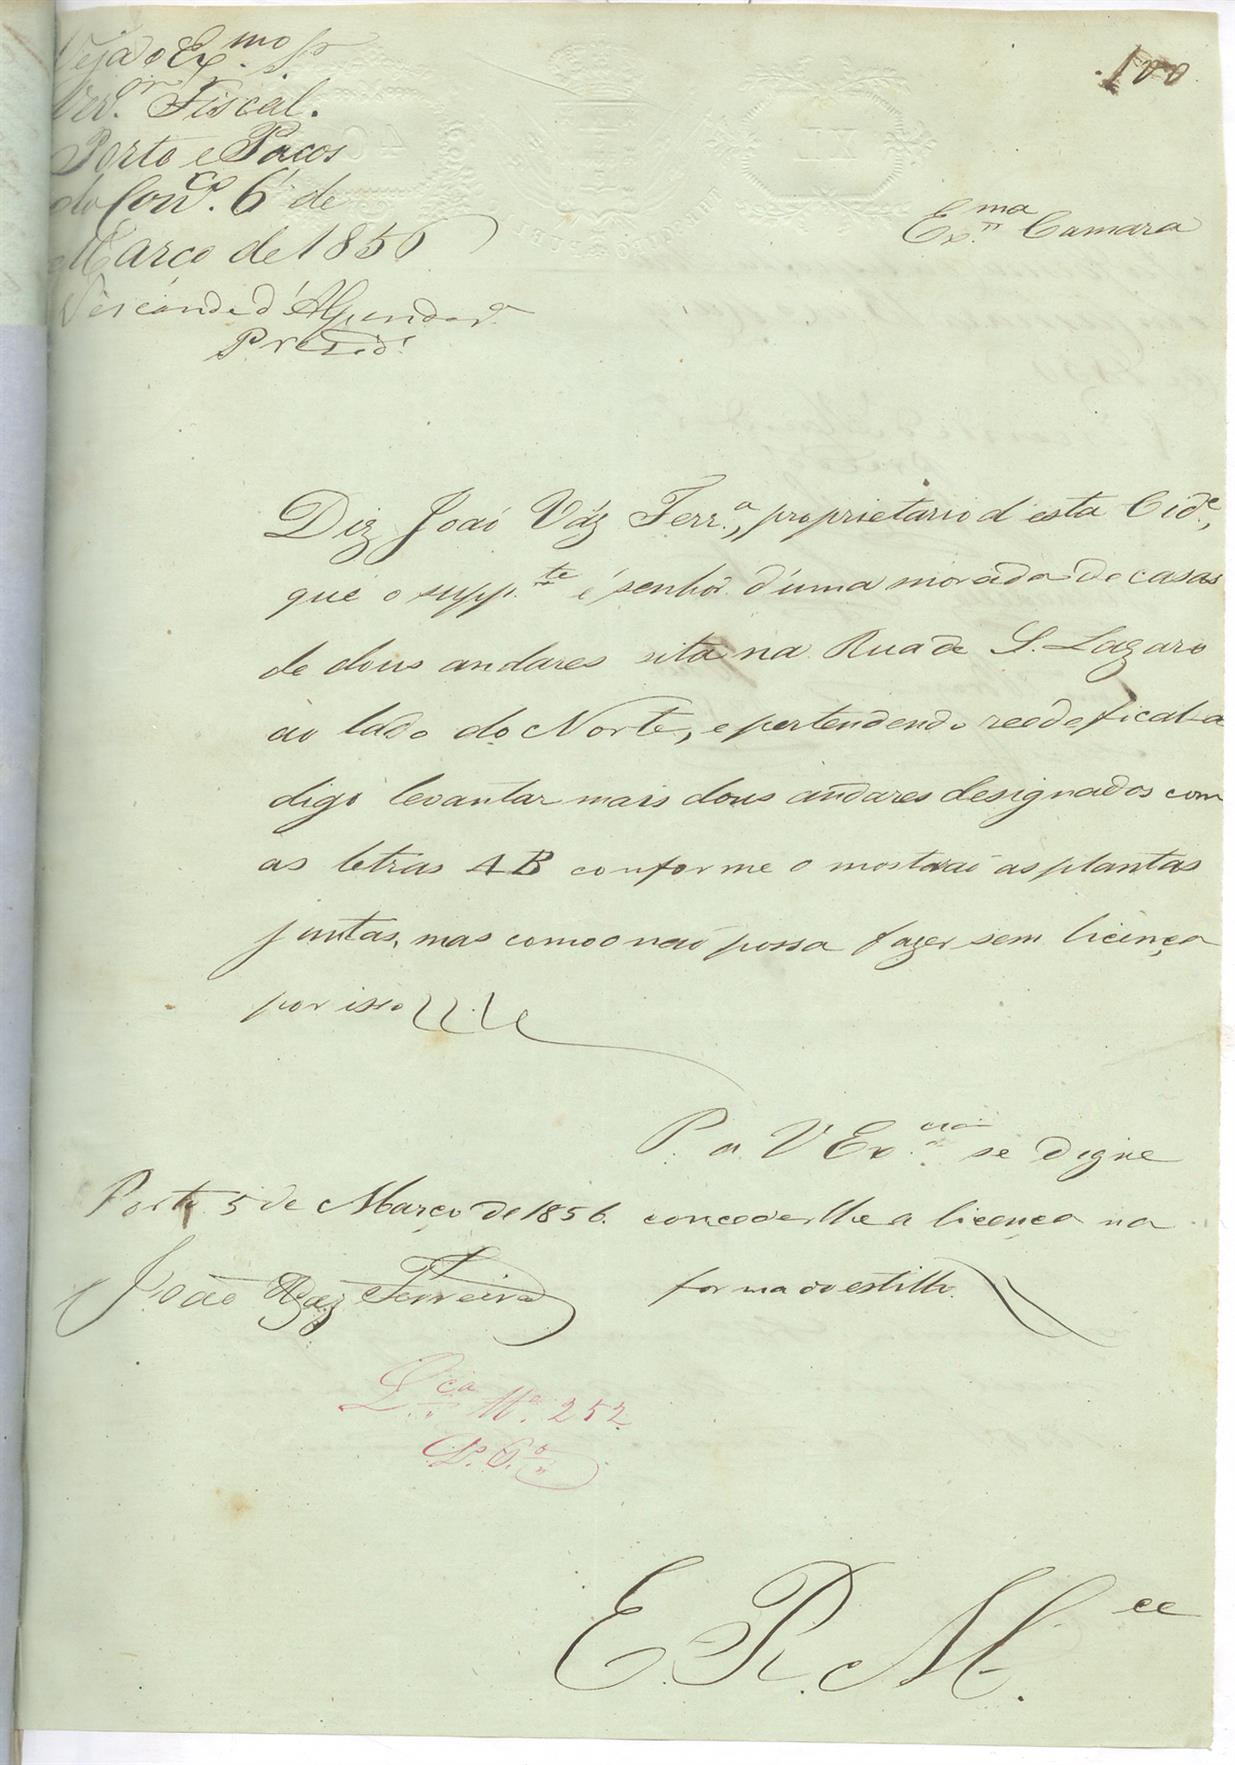 Veja o Ex.mo Sr
Ver.or Fiscal.
Porto e Paços
do Conc.º 6 de
Março de 1856
Visconde d'
Presid.
100
Ex.ma Camara
Diz João Váz Ferr.a, proprietario d'esta Cid.e,
que o supp.te é senhor d'uma morada de casas
de dous andares sita na Rua de S. Lazaro
ao lado do Norte, e pertendendo reedeficala
digo levantar mais dous andares designados com
as letras A B conforme o mostrão as plantas
juntas, mas como o não possa fazer sem licença
por isso
P. a V Ex.cia se digne
Porto 5 de Março de 1856. concederlhe a licença na
João Vaz Ferreira forma do estillo.
L.ca Nº 252
E. R. M.ce